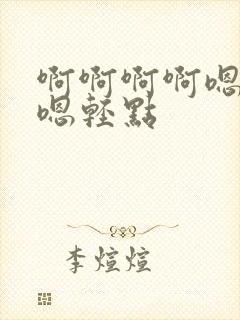 啊啊啊啊嗯
嗯輕點
李煊煊